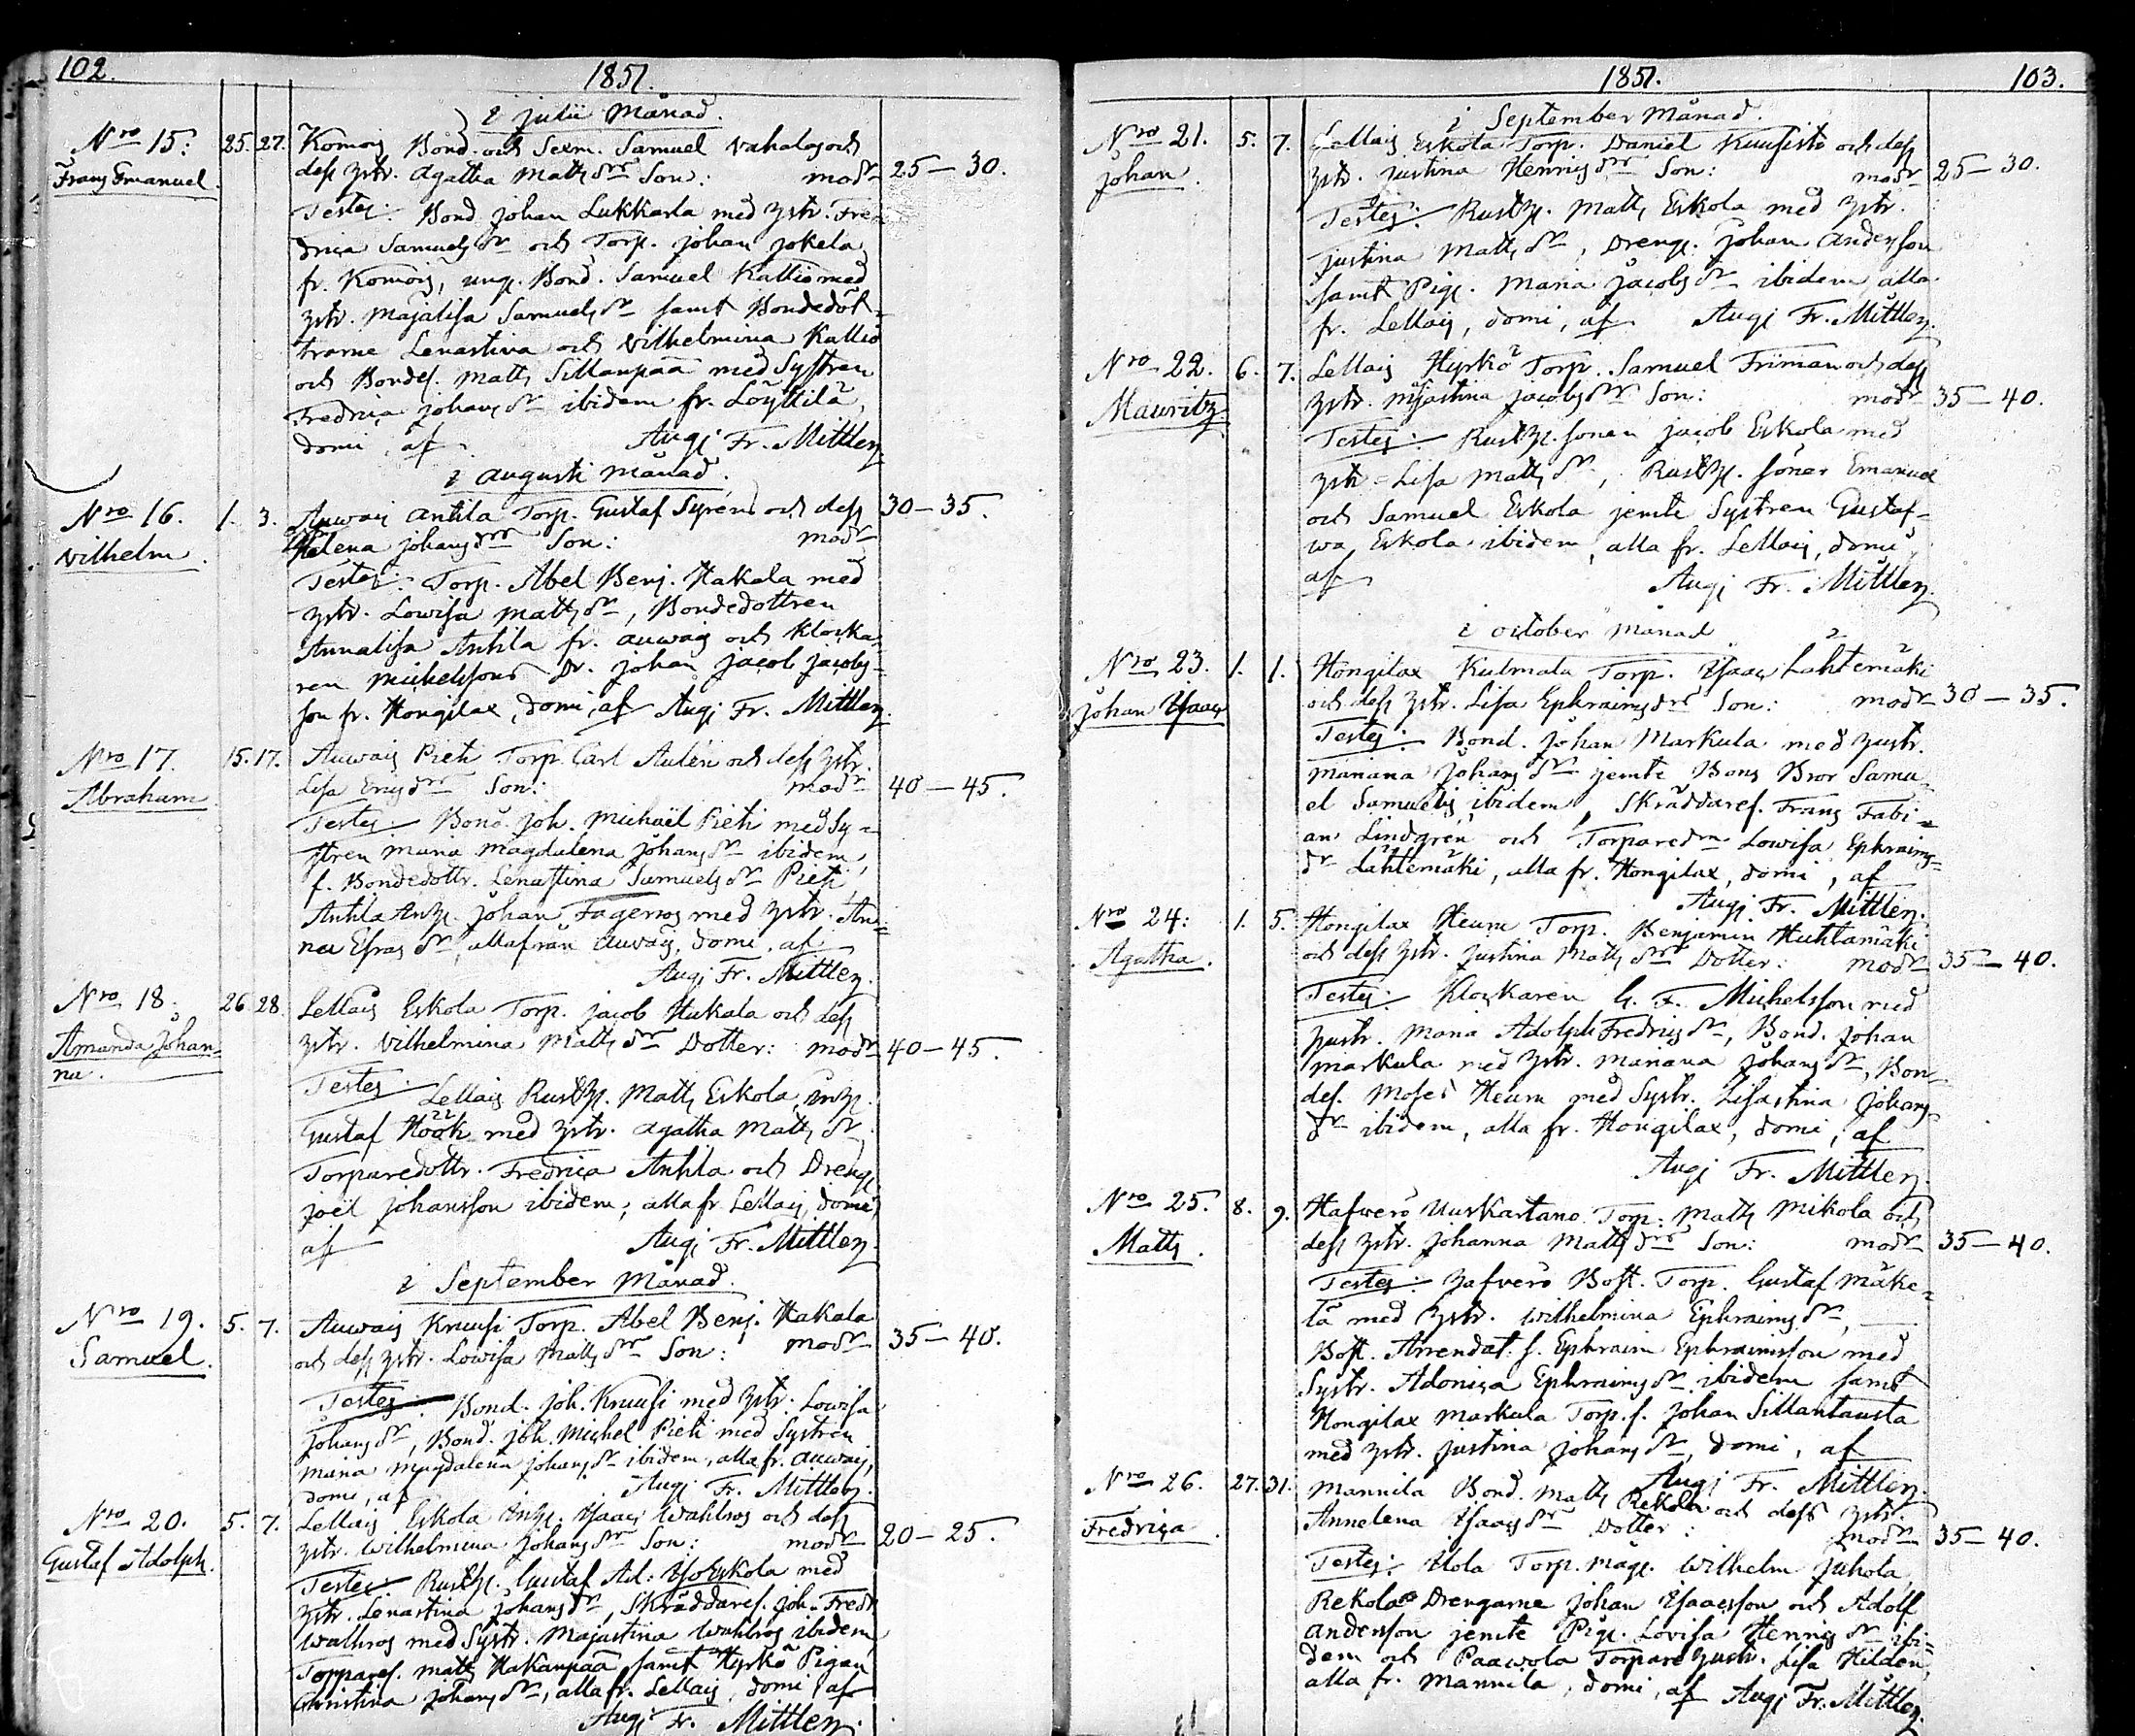 102.
1851.
i julii Månad.
Nro 15: 25. 27. Komois Bond. och Sexm. Samuel Vahalas och
Frans Emanuel. dess hstr. Agatha Matts dr Son: modr 25–30.
Testes: Bond. Johan Lukkarla med hstr. Fre-
drica Samuels dr och Torp. Johan Jokela
fr. Komois, ung. Bond. Samuel Kallio med
hstr. Majalisa Samuels dr samt Bondedöt-
trarne Lenastina och Vilhelmina Kallio
och Bondes. Matts Sillanpää med Systren
Fredrica Johans dr ibidem fr. Löyttilä,
domi, af Augj Fr. Mittler.
i augusti månad.
Nro 16. 1. 3. Auwais Antila Torp. Gustaf Syren och dess 30–35.
Vilhelm. Helena Johans dr Son: modr
Testes: Torp. Abel Benj. Hakala med
hstr. Lowisa Matts dr, Bondedottren
Annalisa Anttila fr. Auwais och Klocka-
ren Michelssons Dr. Johan Jacob Jacobs-
son fr. Hongilax, domi, af Augj Fr. Mittler.
Nro 17. 15. 17. Auwais Pieti Torp. Carl Aulén och dess hstr.
Abraham. Lisa Erics dr Son: modr 40–45.
Testes: Bond. Joh. Michaël Pieti med Sy-
stren Maria Magdalena Johans dr ibidem,
f. Bondedottr. Lenastina Samuels dr Pieti
Anttila Inh. Johan Fagerros med hstr. An-
na Esras dr, alla från Auwais, domi, af
Augj Fr. Mittler.
Nro 18. 26. 28. Lellais Eskola Torp. Jacob Hakala och dess
Amanda Johan- hstr. Vilhelmina Matts dr Dotter: modr 40–45.
na.
Testes: Lellais Rusth. Matts Eskola, Inh.
Gustaf Höök med hstr. Agatha Matts dr
Torparedottr. Fredrica Anttila och Dreng.
Joël Johansson ibidem, alla fr Lellais, domi,
af Augj Fr. Mittler.
i September Månad.
Nro 19. 5. 7. Auwais Kruusi Torp. Abel Benj. Hakala
Samuel. och dess hstr. Lowisa Matts dr Son: modr 35–40.
Testes: Bond. Joh. Kruusi med hstr. Lowisa
Johans dr, Bond. Joh. Michel Pieti med Systren
Maria Magdalena Johans dr ibidem, alla fr. Auwais,
domi, af Augj Fr. Mittler.
Nro 20. 5. 7. Lellais Eskola Inh. Isaac Wahlros och dess
Gustaf Adolph. hstr. Wilhelmina Johans dr Son: modr 20–25.
Testes: Rusth. Gustaf Ad: Yso Eskola med
hstr. Lenastina Johans dr, Skräddares. Joh. Fredr.
Walhros med Systr. Majastina Wahlros ibidem,
Torpares. Matts Hakanpää samt Hyrkö Pigan
Christina Johans dr, alla fr. Lellais, domi, af
Augj Fr. Mittler.
1851.
103.
i September Månad.
Nro 21. 5. 7. Lellais Eskola Torp. Daniel Kuusisto och dess
Johan. hstr. Justina Henrics dr Son: modr 25–30.
Testes: Rusth. Matts Eskola med hstr.
Justina Matts dr, Dreng. Johan Andersson
samt Pig. Maria Jacobs dr ibidem alla
fr. Lellais, domi, af Augj Fr. Mittler.
Nro 22. 6. 7. Lellais Hyrkö Torp. Samuel Friman och dess
Mauritz. hstr. Majastina Jacobs dr Son: modr 35–40.
Testes: Rusth. sonen Jacob Eskola med
hstr. Lisa Matts dr, Rusth. söner Emanuel
och Samuel Eskola jemte Systren Gustaf-
wa Eskola ibidem, alla fr. Lellais, domi,
af Augj Fr. Mittler.
i october månad
Nro 23. 1. 1. Hongilax Kulmala Torp. Isaac Lahtemäki
Johan Isaac och dess hstr. Lisa Ephraims dr Son: modr 30–35.
Testes: Bond. Johan Markula med hustr.
Mariana Johans dr jemte Bons Bror Samu-
el Samuels ibidem, Skräddares. Frans Fabi-
an Lindgren och Torparedr Lowisa Ephraims-
dr Lähtemäki, alla fr. Hongilax, domi, af
Augj Fr. Mittler.
Nro 24: 1. 5. Hongilax Heurn Torp. Benjamin Huhtamäki
Agatha. och dess hstr. Justina Matts dr Dotter: modr 35–40.
Testes: Klockaren G. F. Michelsson med
hustr. Maria Adolph Fredrics dr, Bond. Johan
Markula med hstr. Mariana Johans dr, Bon-
des. Moses Heurn med Systr. Lisastina Johans-
dr ibidem, alla fr. Hongilax, domi, af
Augj Fr. Mittler.
Nro 25. 8. 9. Hafwerö Uuskartano Torp: Matts Mikola och
Matts. dess hstr. Johanna Matts dr Son: modr 35–40.
Testes: Hafverö Bost. Torp. Gustaf Mäke-
lä med hstr. Wilhelmina Ephraims dr,
Bost. Arrendat. s. Ephraim Ephraimsson med
Systr. Adonica Ephraims dr ibidem samt
Hongilax Markula Torp. s. Johan Sillantausta
med hstr. Justina Johans dr, domi, af
Augj Fr. Mittler.
Nro 26. 27. 31. Mannila Bond. Matts Rekola och dess hstr.
Fredrica. Annelena Isaacs dr Dotter: modr 35–40.
Testes: Uola Torp. måg. Wilhelm Juhola,
Rekola Drengarne Johan Isaacsson och Adolf
Andersson jemte Pig. Lovisa Henrics dr ibi-
dem och Paawola Torpare hustr. Lisa Hildén,
alla fr. Mannila, domi, af Augj Fr. Mittler.